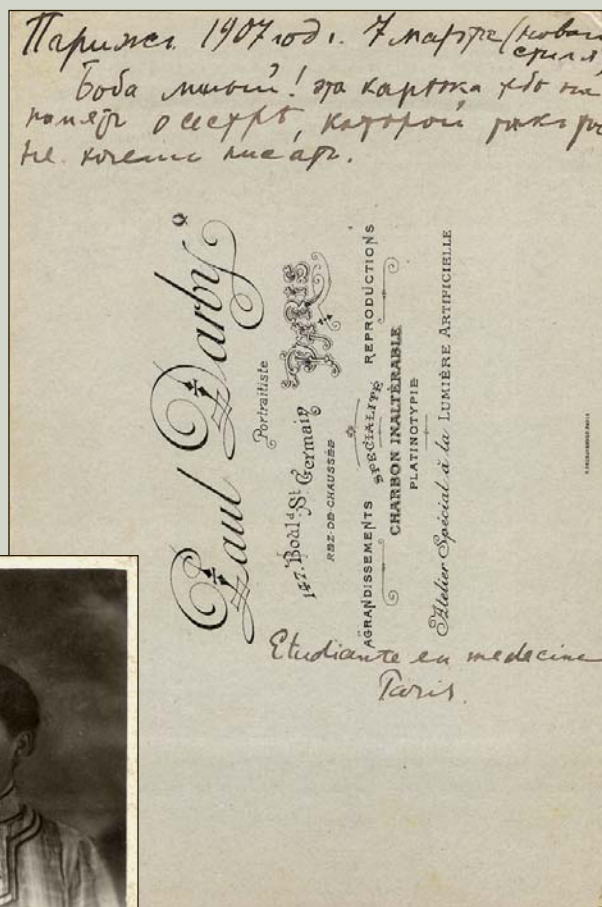 Парижъ. 1907 год. 7 марта (новаго
стиля
Боба милый! эта карточка тебѣ на
память о сестрѣ, которой такъ
не хочешь писать.
Paul Darby
Portraitiste
147. Boul.d St. Germain PARIS
REZ-DE-CHAUSSÉE
AGRANDISSEMENTS SPÉCIALITÉ REPRODUCTIONS
CHARBON INALTÉRABLE
PLATINOTYPIE
Atelier Spécial à la LUMIÈRE ARTIFICIELLE
Etudiante en medecine
Paris.